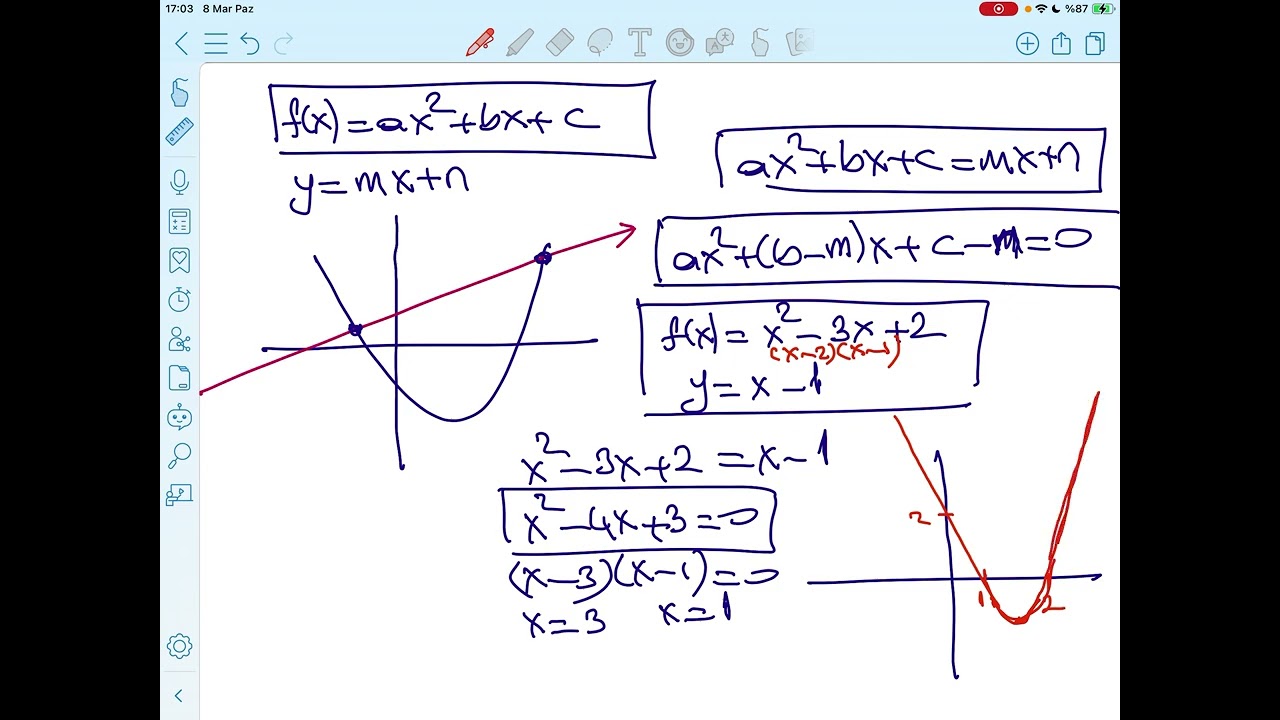 17:03 8 Mar Paz
%87
f(x)=ax²+bx+c
y=mx+n
ax²+bx+c=mx+n
ax²+(b-m)x+c-n=0
f(x)=x²-3x+2
(x-2)(x-1)
y=x-1
x²-3x+2=x-1
x²-4x+3=0
(x-3)(x-1)=0
x=3 x=1
2
1 2